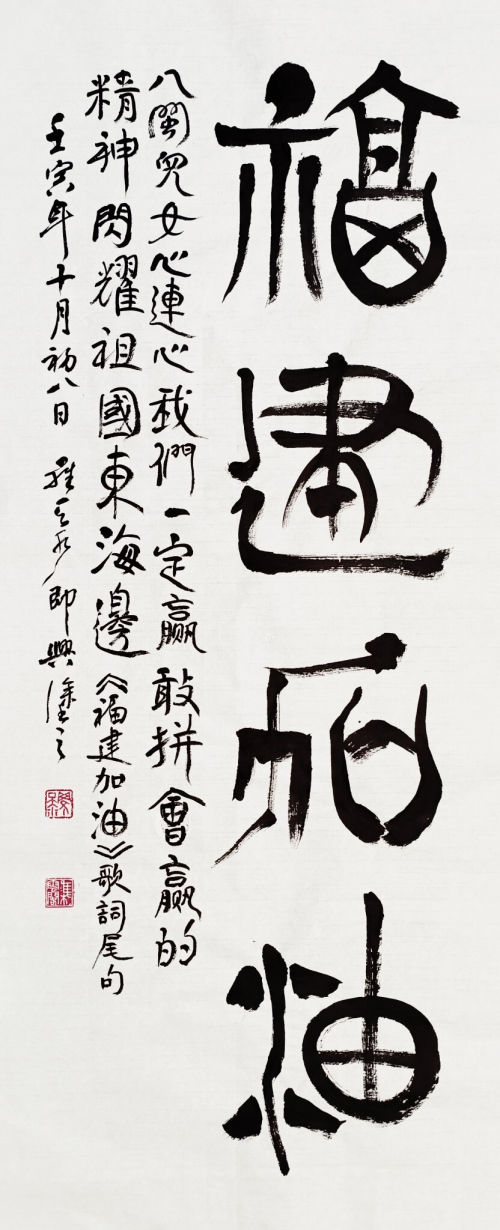 福建加油
八閩兒女心連心我們一定贏敢拼會贏的
精神閃耀祖國東海邊《福建加油》歌詞尾句
壬寅年十月初八日 即興塗之